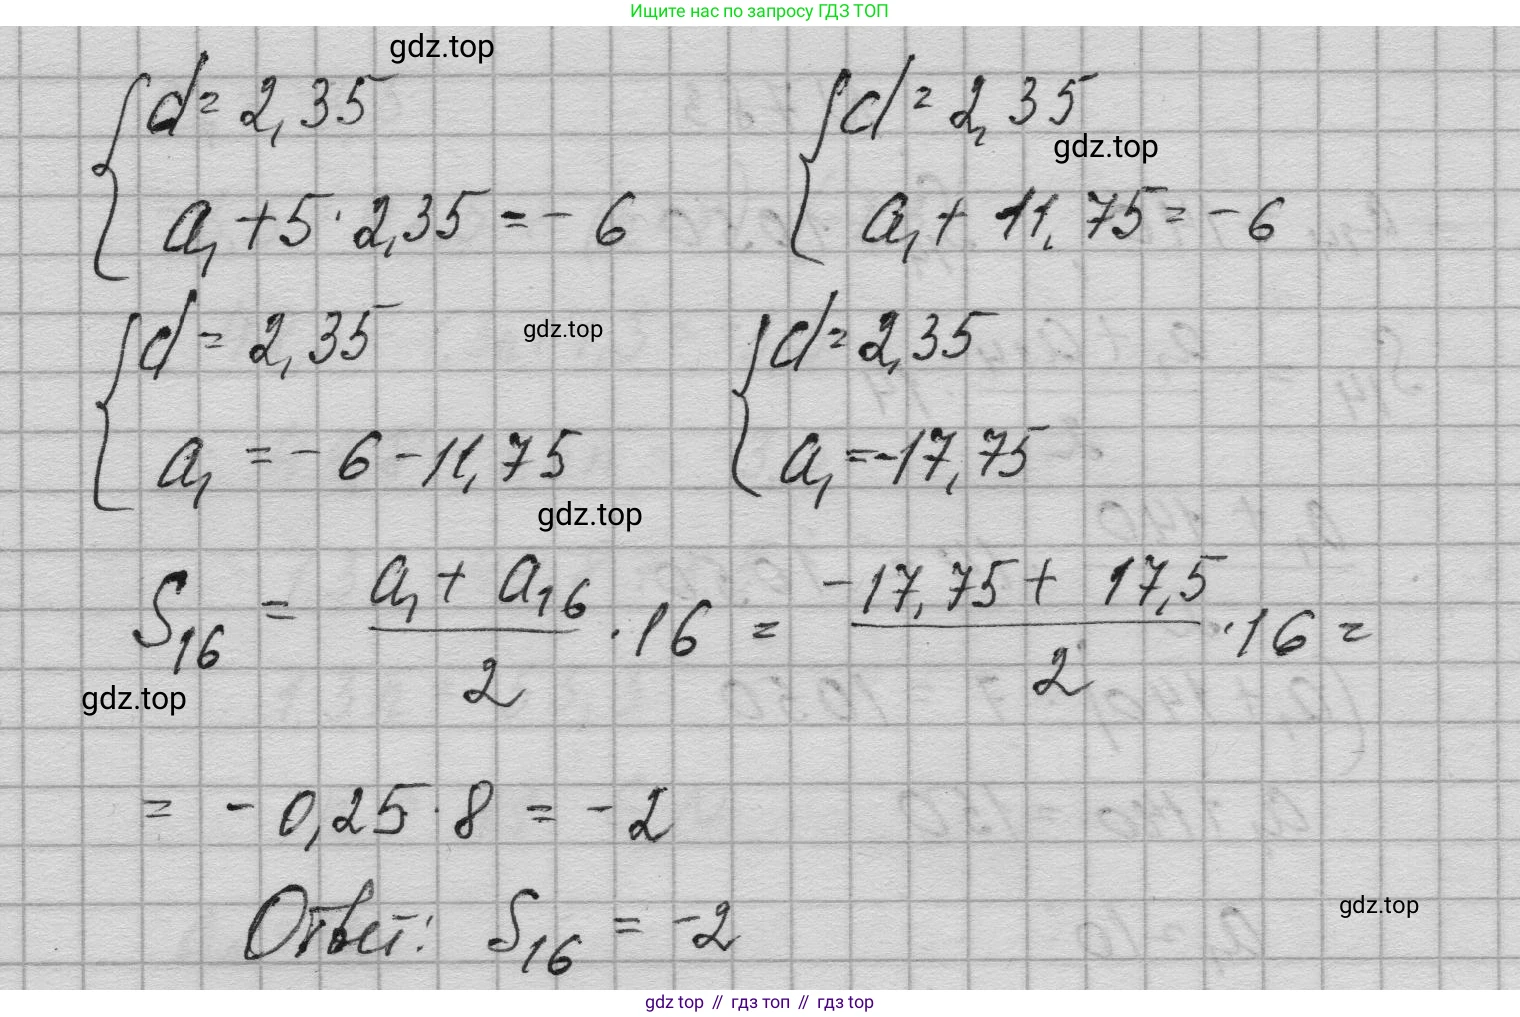 Ищите нас по запросу ГДЗ ТОП
gdz.top
{ d = 2,35
a₁ + 5 · 2,35 = - 6
{ d = 2,35
gdz.top
a₁ + 11,75 = - 6
{ d = 2,35
a₁ = - 6 - 11,75
gdz.top
{ d = 2,35
a₁ = -17,75
gdz.top
S₁₆ = (a₁ + a₁₆)/2 · 16 = (-17,75 + 17,5)/2 · 16 =
gdz.top
= - 0,25 · 8 = - 2
Ответ: S₁₆ = -2
gdz.top
gdz top // гдз топ // гдз top